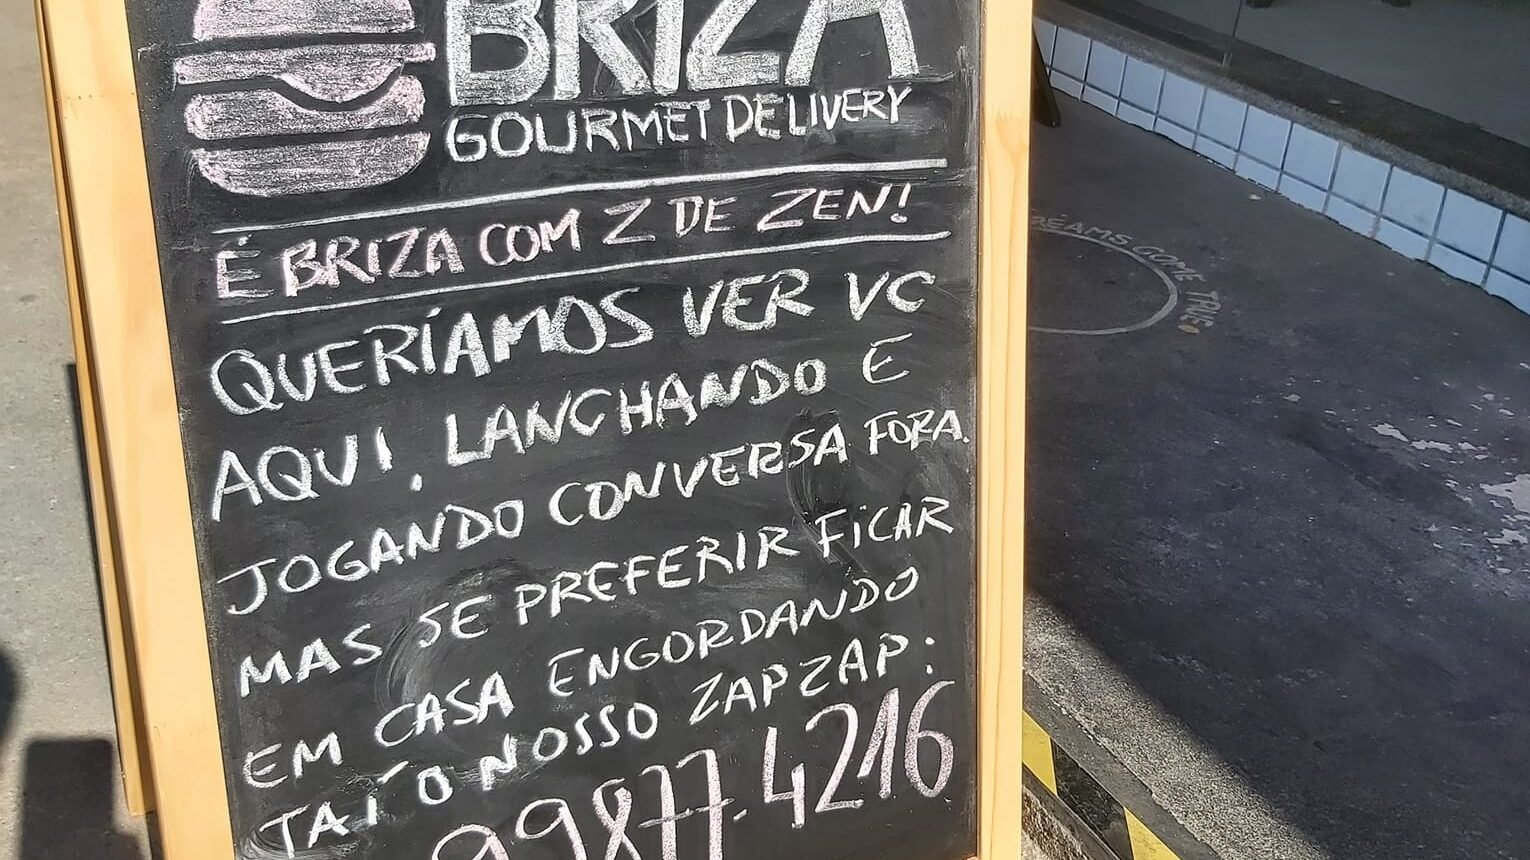 BRIZA
GOURMET DELIVERY
É BRIZA COM Z DE ZEN!
QUERÍAMOS VER VC
AQUI, LANCHANDO E
JOGANDO CONVERSA FORA.
MAS SE PREFERIR FICAR
EM CASA ENGORDANDO
TAÍ O NOSSO ZAPZAP:
99877.4216
DREAMS COME TRUE